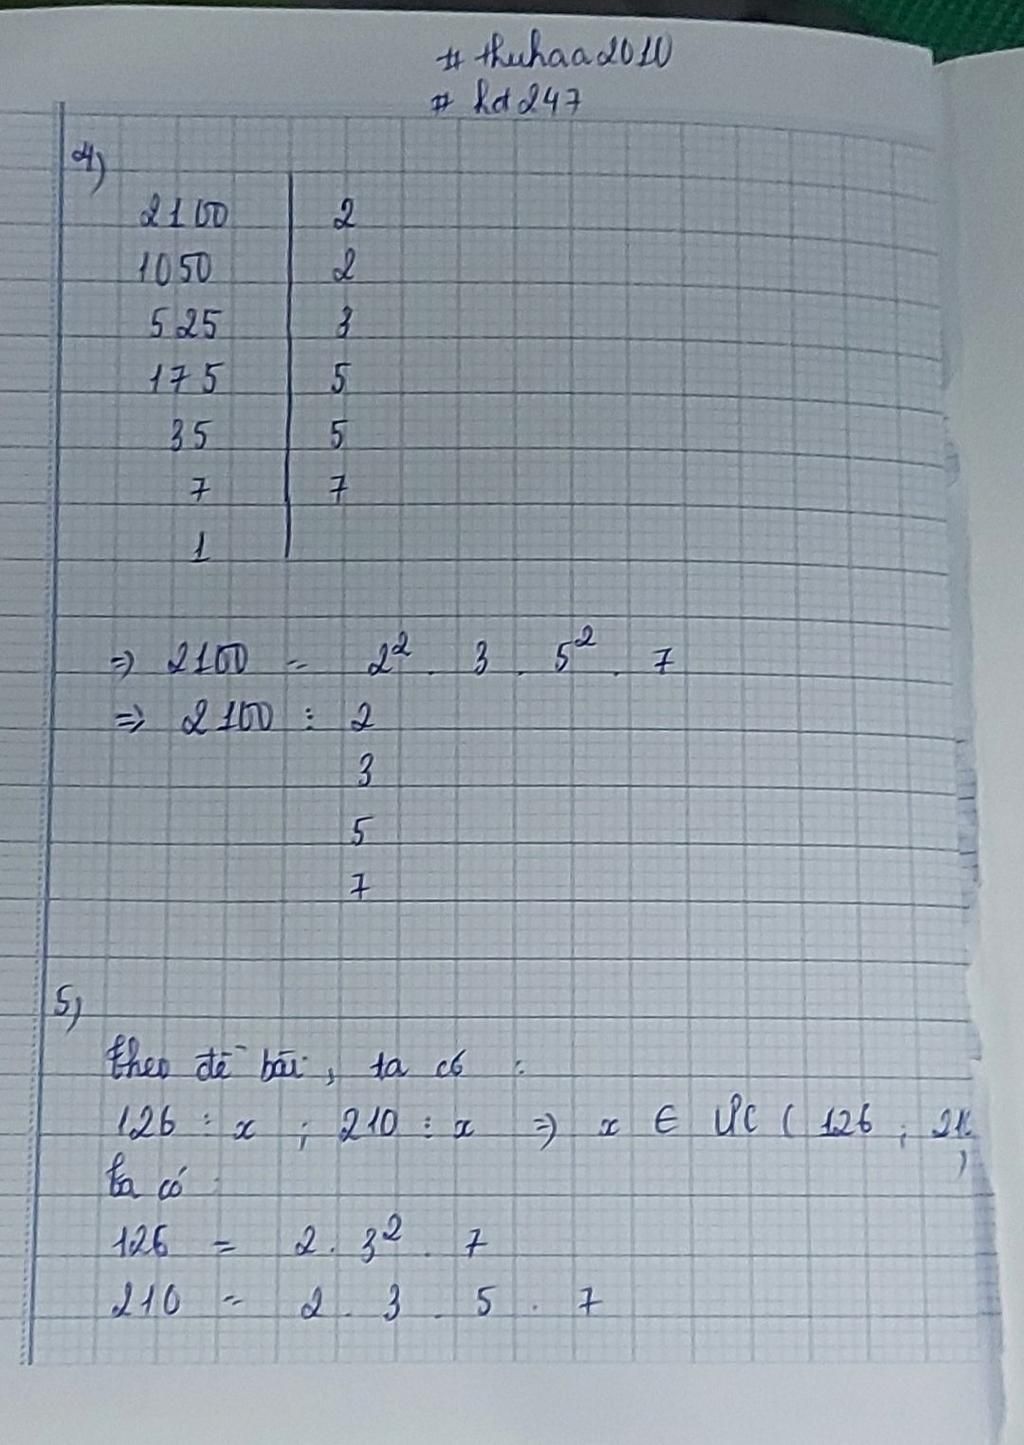 # thuhaa2010
# hd247
4)
2100 | 2
1050 | 2
525 | 3
175 | 5
35 | 5
7 | 7
1
=> 2100 = 2² . 3 . 5² . 7
=> 2100 ⋮ 2
3
5
7
5)
theo đề bài, ta có :
126 ⋮ x ; 210 ⋮ x => x ∈ ƯC ( 126 ; 210
)
ta có
126 = 2 . 3² . 7
210 = 2 . 3 . 5 . 7